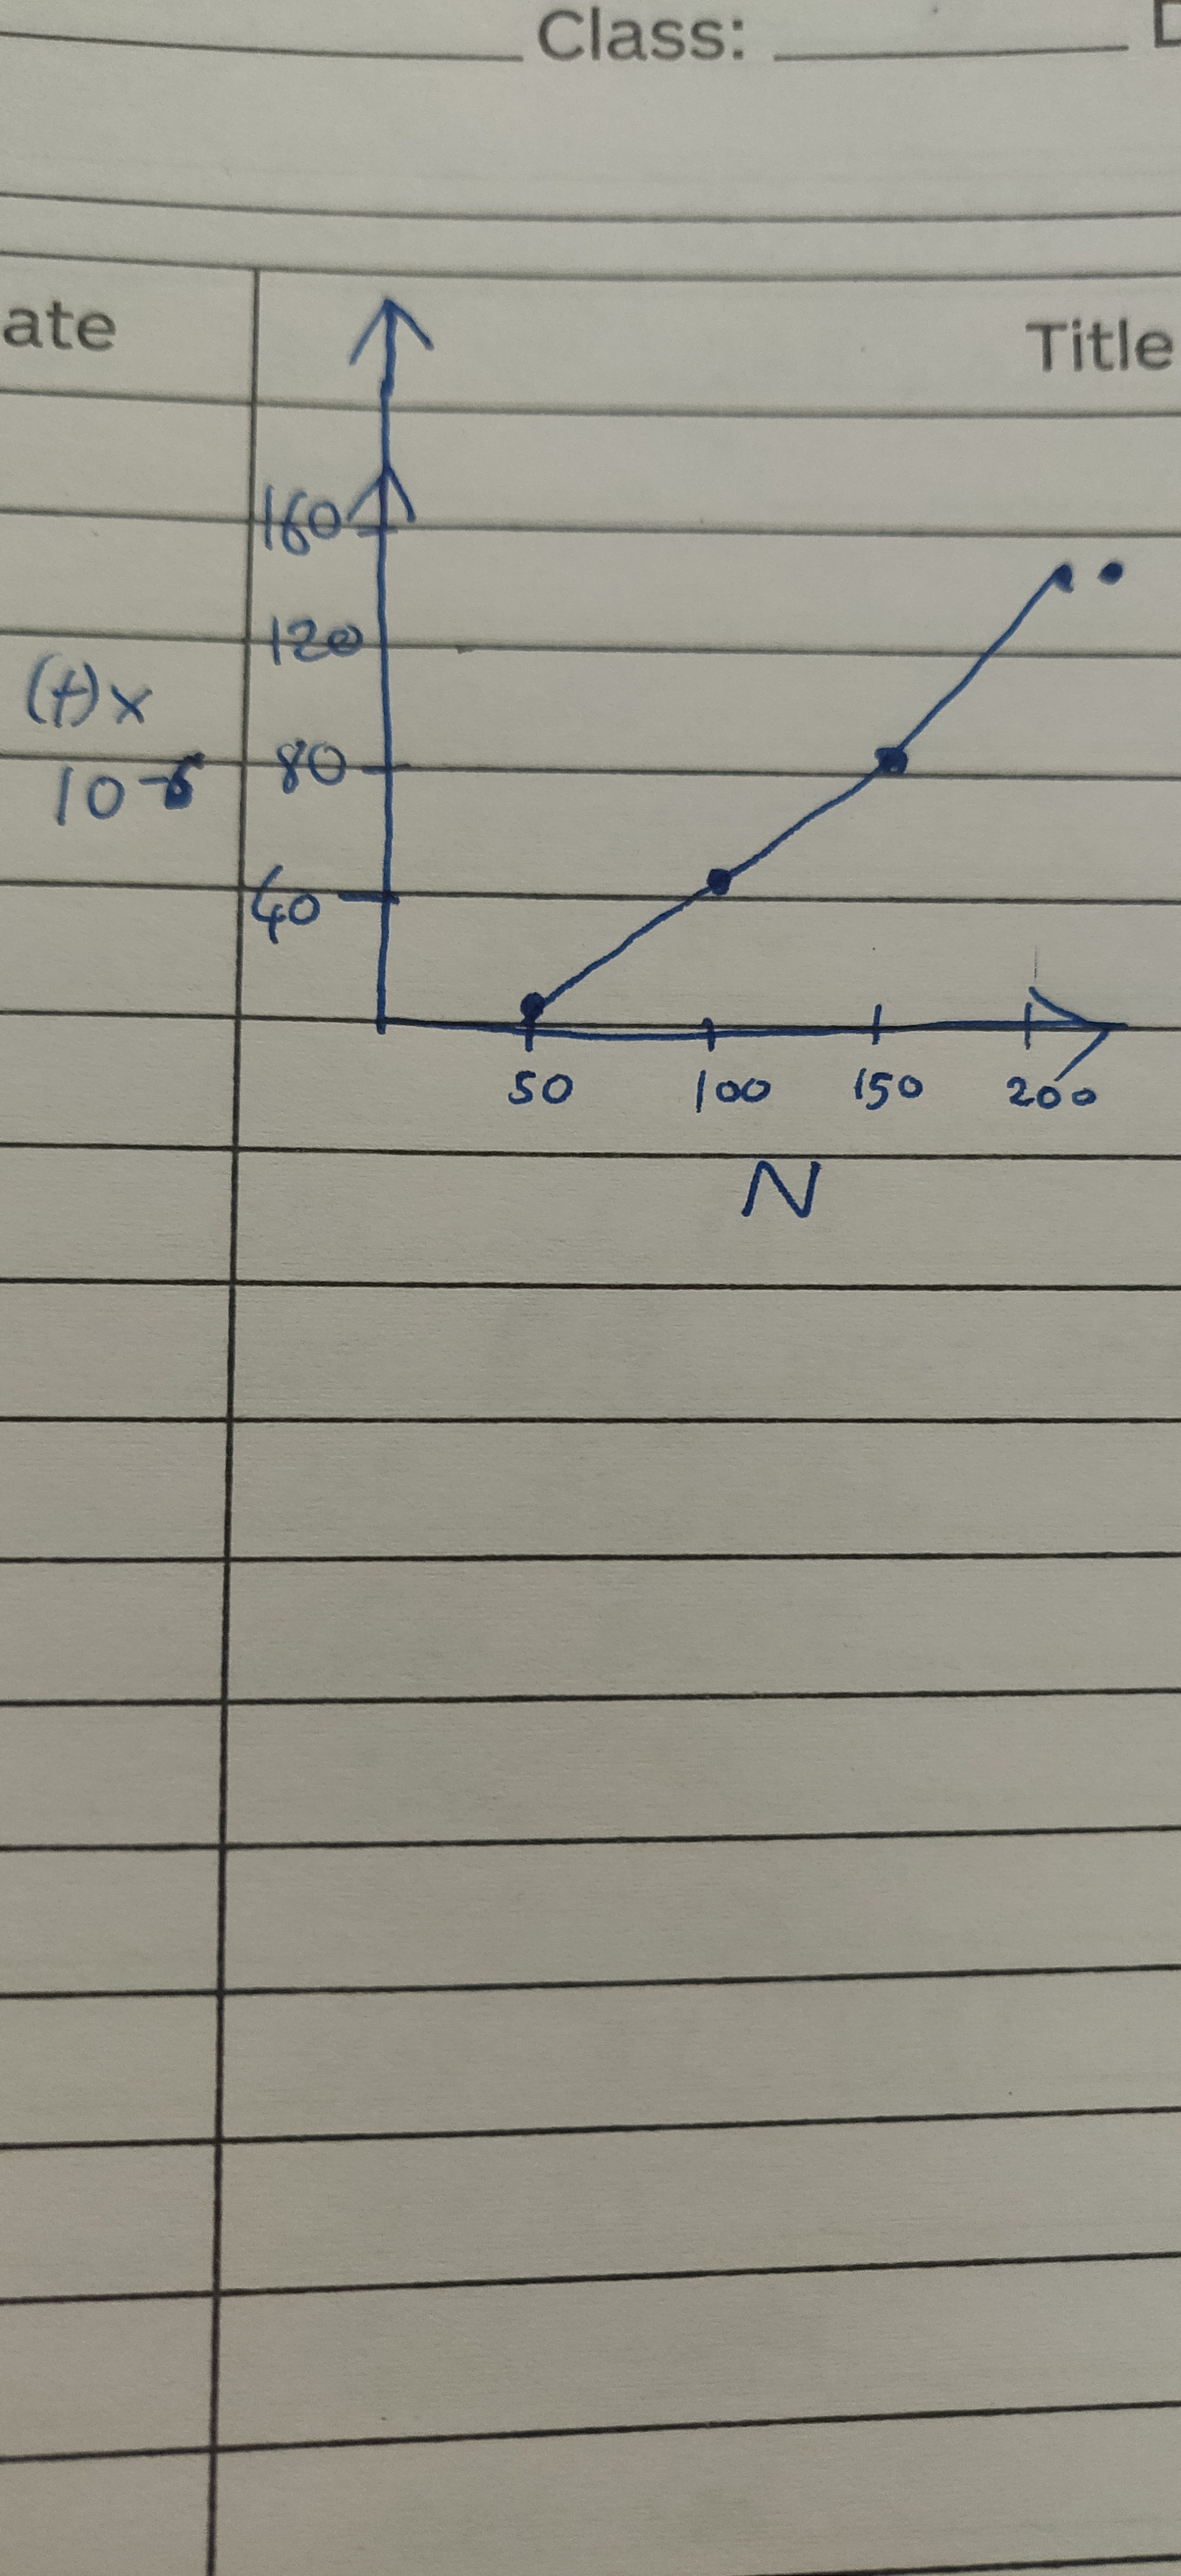 Class:
ate
Title
160
120
(t)x
10-6 80
40
50 100 150 200
N